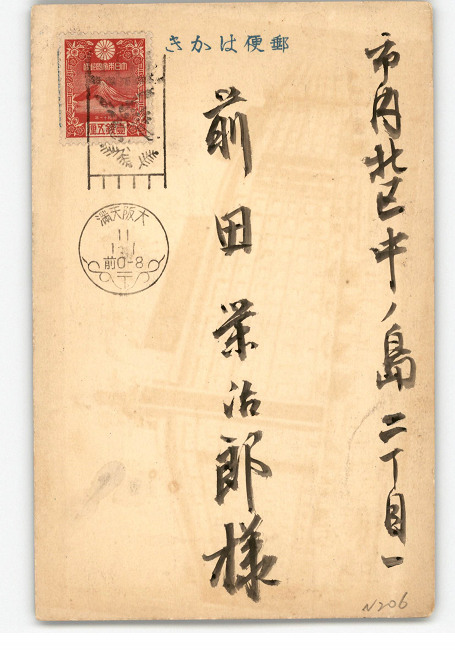 郵便はかき
市内北区中ノ島二丁目一
前田栄治郎様
大日本帝国郵便
壹銭五厘
大阪天満
11
1-1
前0-8
N206